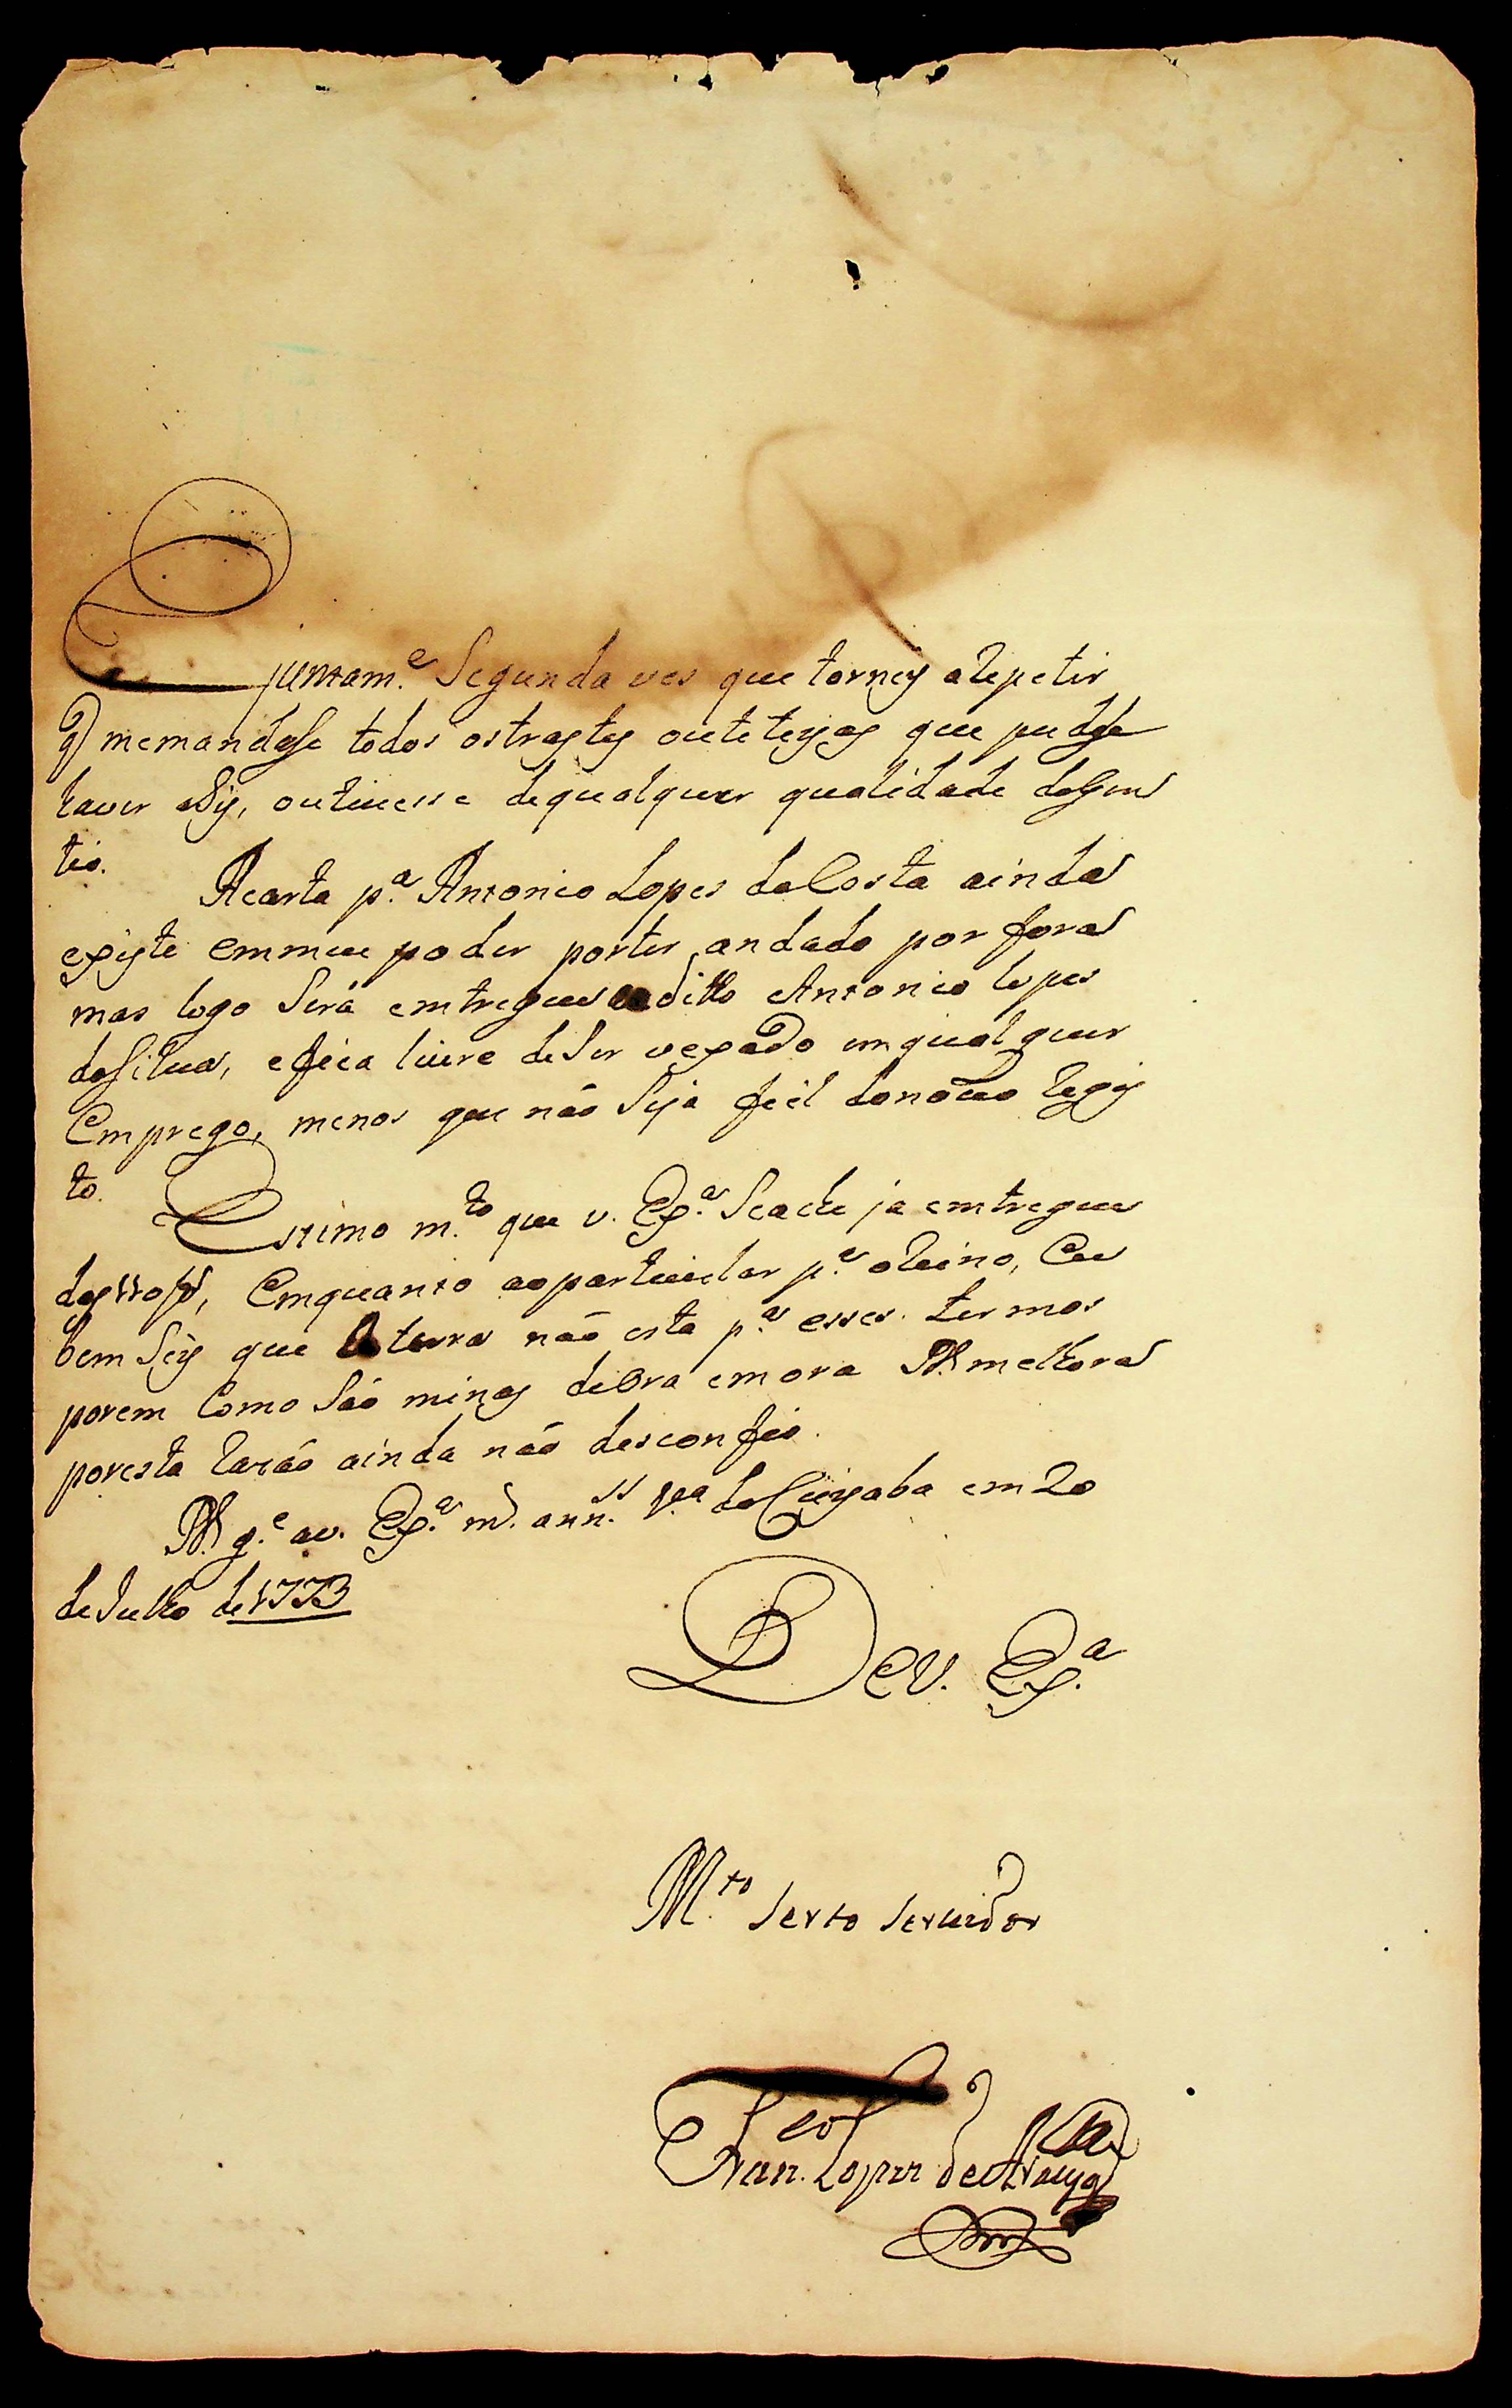 E juntam.e Segunda ves que torney arepetir
q memandase todos ostrastes que pudese
haver dSy, outivesse dequalquer qualidade doGen
tio.
Acarta p.a Antonio Lopes daCosta ainda
existe emmeu poder porter andado por fora
mas logo Será emtregue ditto Antonio lopes
daSilva, efica livre deSer vexado emqualquer
Emprego, menos que não Seja fiel donovo Regis
to.
Estimo m.to que v. Ex.a Seache ja emtregue
das, Emquanto aoparticular p.a oReino, Eu
bem Sey que a terra não esta p.a esses termos
porem Como São minas deOra emora melhora
poresta Razão ainda não desconfio.
D.s g.e av. Ex.a m.s ann.s V.a doCuyaba em 20
deJulho de1773
DeV. Ex.a
M.to Serto Servidor
Fran.co Lopes deAraujo